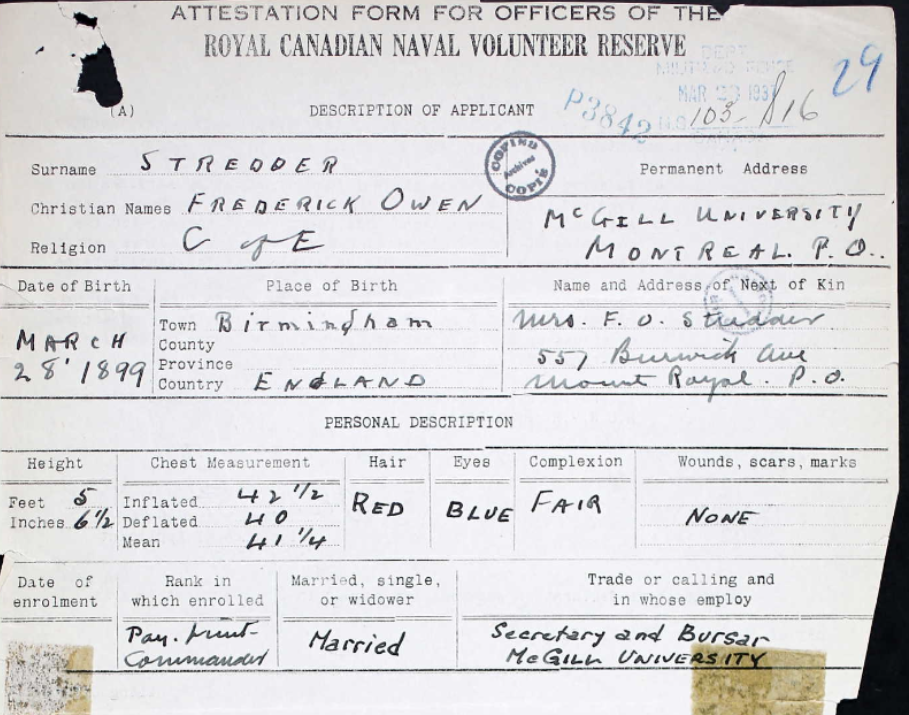 ATTESTATION FORM FOR OFFICERS OF THE
ROYAL CANADIAN NAVAL VOLUNTEER RESERVE
29
MAR 1937
P3842
103-S16
(A) DESCRIPTION OF APPLICANT
COPIND Archives COPIE
Surname STREDDER
Christian Names FREDERICK OWEN
Religion C of E
Permanent Address
McGILL UNIVERSITY
MONTREAL. P.Q.
Date of Birth
MARCH
28' 1899
Place of Birth
Town Birmingham
County
Province
Country ENGLAND
Name and Address of Next of Kin
Mrs. F. O. Stredder
557 Ave
Mount Royal. P.Q.
PERSONAL DESCRIPTION
Height
Feet 5
Inches 6½
Chest Measurement
Inflated 42 1/2
Deflated 40
Mean 41 1/4
Hair
RED
Eyes
BLUE
Complexion
FAIR
Wounds, scars, marks
NONE
Date of
enrolment
Rank in
which enrolled
Pay. Lieut-
Commander
Married, single,
or widower
Married
Trade or calling and
in whose employ
Secretary and Bursar
McGILL UNIVERSITY